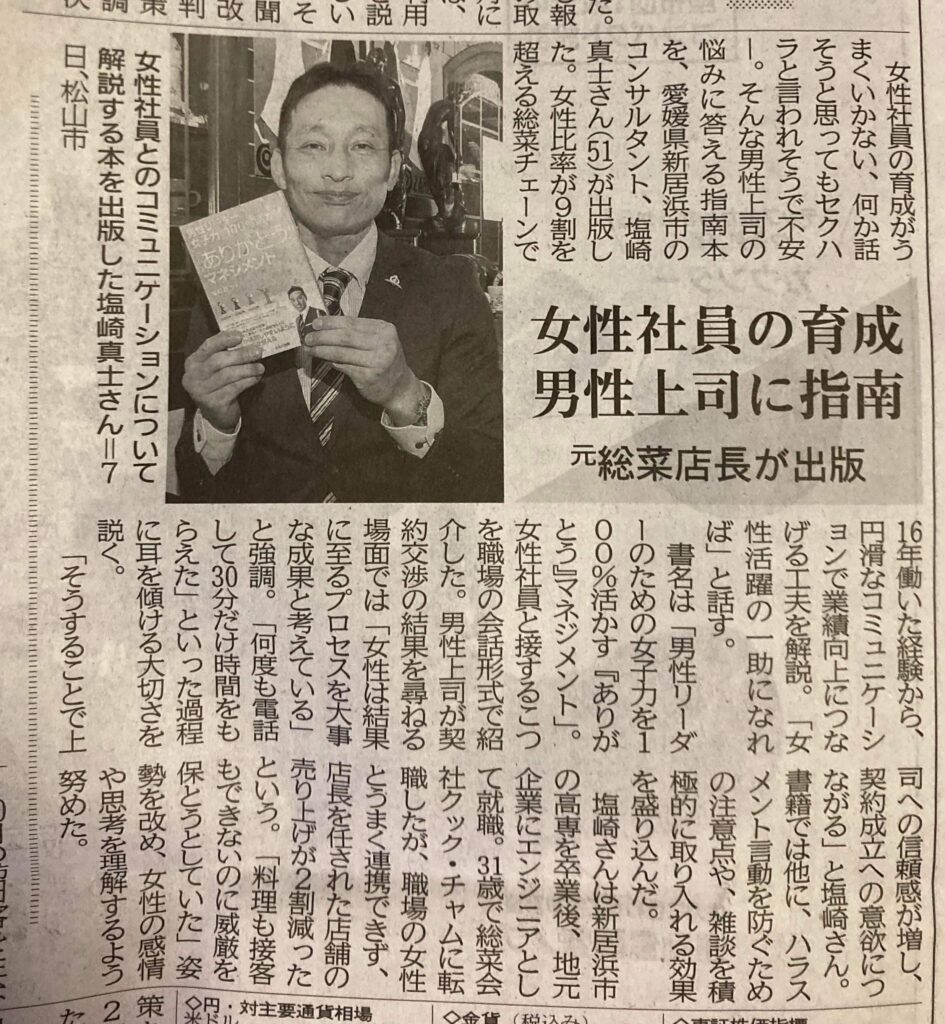 女性社員の育成
男性上司に指南
元総菜店長が出版
女性社員の育成がう
まくいかない、何か話
そうと思ってもセクハ
ラと言われそうで不安
ー。そんな男性上司の
悩みに答える指南本
を、愛媛県新居浜市の
コンサルタント、塩崎
真士さん(51)が出版し
た。女性比率が9割を
超える総菜チェーンで
女性社員とのコミュニケーションについて
解説する本を出版した塩崎真士さん=7
日、松山市
ありがとう
マネジメント
16年働いた経験から、
円滑なコミュニケーシ
ョンで業績向上につな
げる工夫を解説。「女
性活躍の一助になれ
ば」と話す。
書名は「男性リーダ
ーのための女子力を1
00%活かす『ありが
とう』マネジメント」。
女性社員と接するこつ
を職場の会話形式で紹
介した。男性上司が契
約交渉の結果を尋ねる
場面では「女性は結果
に至るプロセスを大事
な成果と考えている」
と強調。「何度も電話
して30分だけ時間をも
らえた」といった過程
に耳を傾ける大切さを
説く。
「そうすることで上
司への信頼感が増し、
契約成立への意欲につ
ながる」と塩崎さん。
書籍では他に、ハラス
メント言動を防ぐため
の注意点や、雑談を積
極的に取り入れる効果
を盛り込んだ。
塩崎さんは新居浜市
の高専を卒業後、地元
企業にエンジニアとし
て就職。31歳で総菜会
社クック・チャムに転
職したが、職場の女性
とうまく連携できず、
店長を任された店舗の
売り上げが2割減った
という。「料理も接客
もできないのに威厳を
保とうとしていた」姿
勢を改め、女性の感情
や思考を理解するよう
努めた。
◇円・対主要通貨相場
米ドル
◇金貨(税込み)
◇東証株価指標